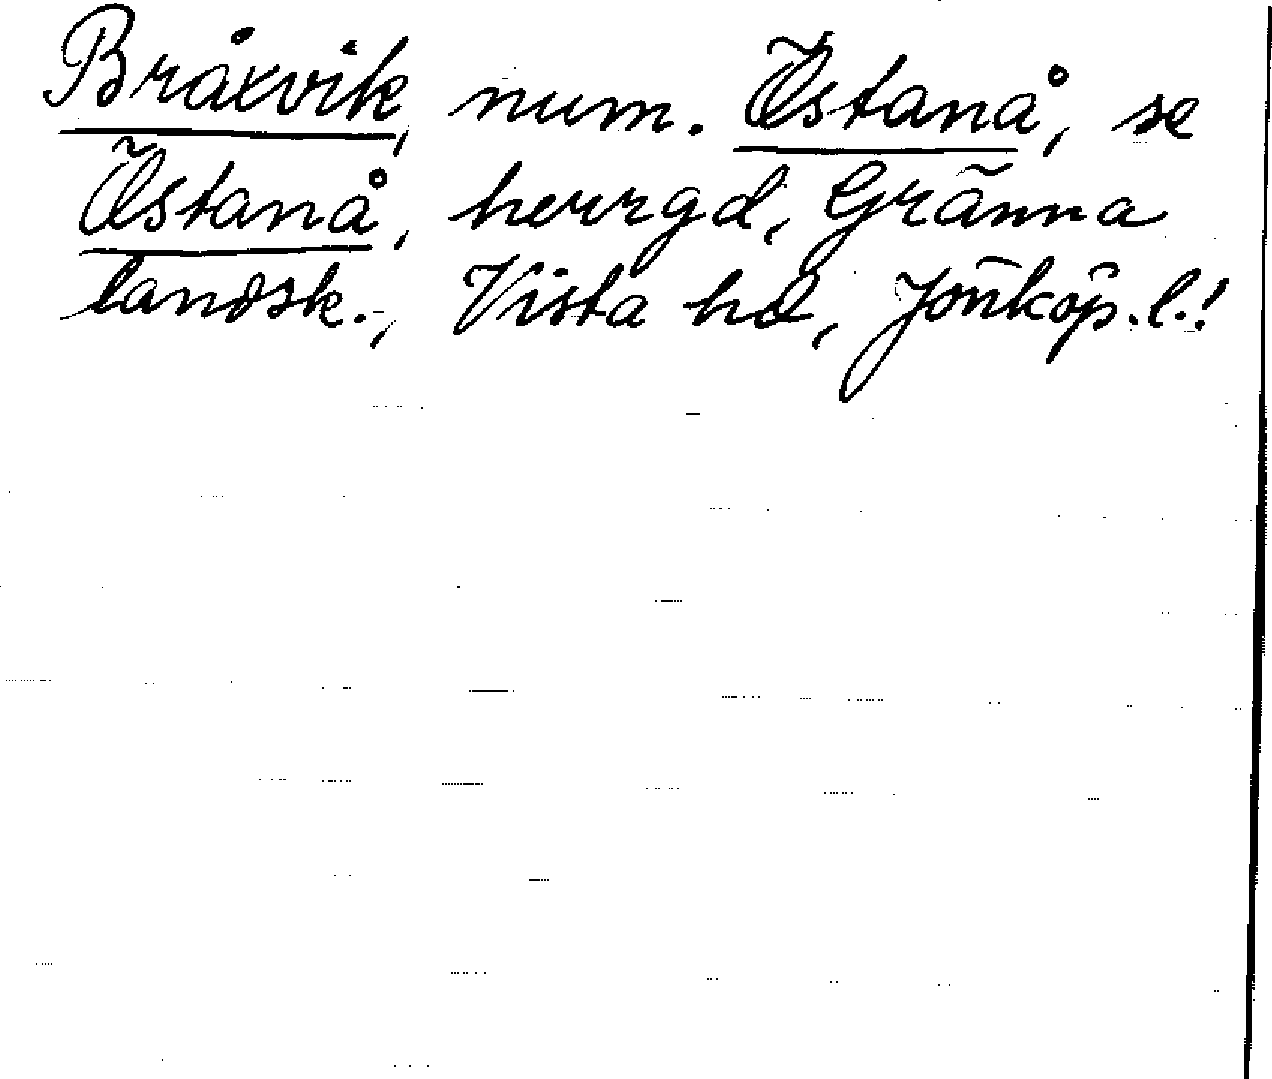 Bråxvik, num. Östanå, se
Östanå, herrgd, Gränna
landsk., Vista hd, Jönköp.l.!